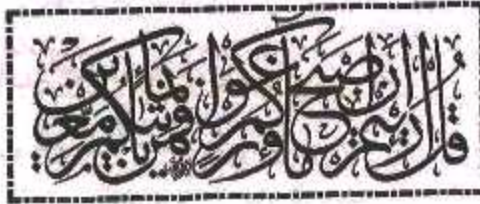 قل ارأيتم ان اصبح ماؤكم غورا فمن يأتيكم بماء معين